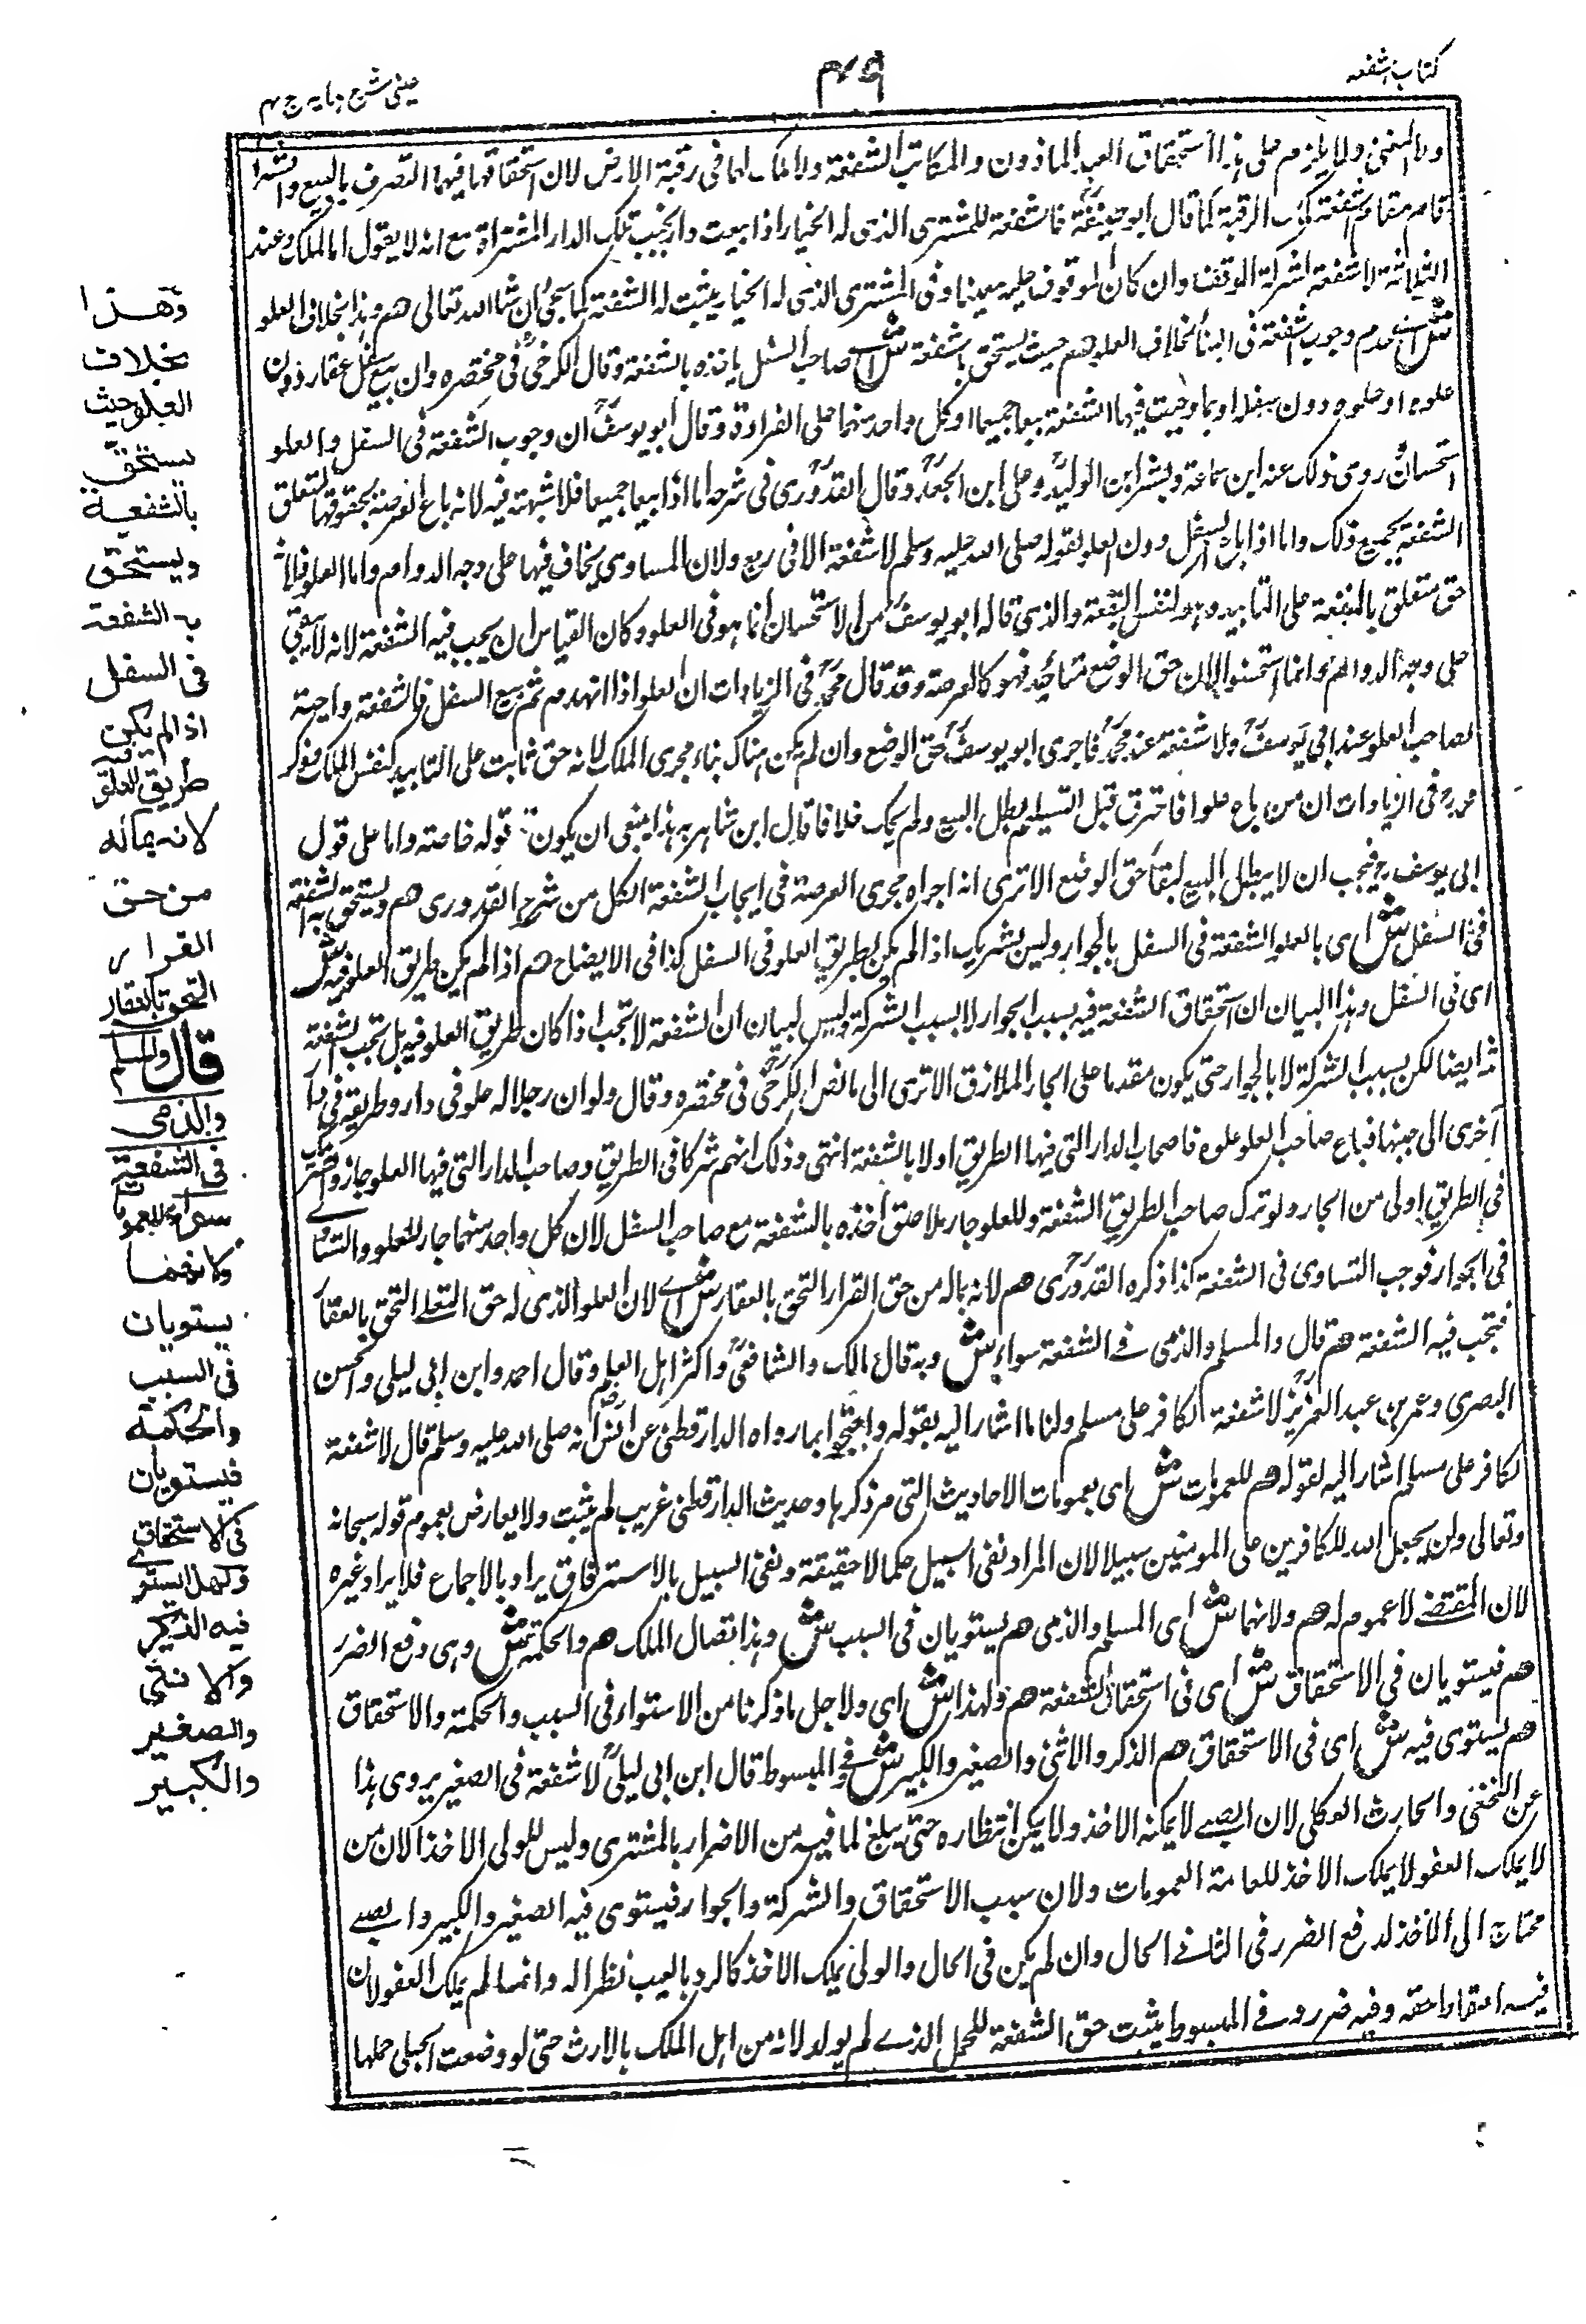 كتاب الشفعة
عينى شرح هدايه ج ٣
ولا المغنى ولا يلزم على هذا استحقاق العبد الماذون والمكاتب الشفعة ولا ملك لهما فى رقبة الارض لان استحقاقهما فيهما التصرف بالبيع والشراء
قام مقام ملك الرقبة كما قال ابو حنيفة الشفعة للمشترى الذى له الخيار اذا بيعت دار بجنب تلك الدار المشتراة مع انه لا يقول اما الملك وعند
الثلاثة لا شفعة لشركة الوقف وان كان الموقوف عليه معينا وفى المشترى الذى له الخيار يثبت له الشفعة كما يجئ ان شاء الله تعالى هم وهذا بخلاف العلو
ش اى عدم وجوب الشفعة فى البناء بخلاف العلو هم حيث يستحق بالشفعة ش اى صاحب السفل ياخذه بالشفعة وقال الكرخى فى مختصره وان بيع سفل عقار دون
علوه او علوه دون سفله او بيعا وجبت فيهما الشفعة بيعا جميعا او كل واحد منهما على انفراده وقال ابو يوسف ان وجوب الشفعة فى السفل والعلو
استحسان روى ذلك عنه ابن سماعة وبشر ابن الوليد وعلى ابن الجعد وقال القدورى فى شرحه اما اذا بيعا جميعا فلا شبهة فيه لانه باع العرصة بحقوقها لتعلق
الشفعة بجميع ذلك واما اذا باع السفل دون العلو لقوله صلى الله عليه وسلم لا شفعة الا فى ربع ولان المساوى يخاف فيها على وجه الدوام واما العلو فلانه
حق متعلق بالمنفعة على التابيد وهو لنفس البقعة والذى قاله ابو يوسف من الاستحسان انما هو فى العلو وكان القياس ان يجب فيه الشفعة لانه لا يبقى
على وجه الدوام وانما استحسنوا لان حق الوضع متابد فهو كالعرصة وقد قال محمد فى الزيادات ان العلو اذا انهدم ثم بيع السفل فالشفعة واجبة
لصاحب العلو عند ابى يوسف ولا شفعة عند محمد فاجرى ابو يوسف حق الوضع وان لم يكن هناك بناء مجرى الملك لانه حق ثابت على التابيد كنفس الملك وذكر
محمد فى الزيادات ان من باع علوا فاحترق قبل التسليم بطل البيع ولم يحك خلافا قال ابن شاهويه هذا ينبغى ان يكون قوله خاصة واما على قول
ابى يوسف فيجب ان لا يبطل البيع لبقاء حق الوضع الا ترى انه اجراه مجرى العرصة فى ايجاب الشفعة الكل من شرح القدورى هم ويستحق به الشفعة
فى السفل ش اى بالعلو الشفعة فى السفل بالجوار وليس بشريك اذا لم يكن طريق العلو فى السفل كذا فى الايضاح هم اذا لم يكن طريق العلو فيه ش
اى فى السفل وهذا البيان ان استحقاق الشفعة فيه بسبب الجوار لا بسبب الشركة وليس لبيان ان الشفعة لا تجب اذا كان طريق العلو فيه بل تجب الشفعة
ثمه ايضا لكن بسبب الشركة لا بالجوار حتى يكون مقدما على الجار الملازق الا ترى الى ما نص الكرخى فى مختصره وقال ولو ان رجلا له علو فى دار وطريقه فى دار
اخرى الى جنبها فباع صاحب العلو علوه فاصحاب الدار التى فيها الطريق اولا بالشفعة انتهى وذلك انهم شركا فى الطريق وصاحب الدار التى فيها العلو جار والشريك
فى الطريق اولى من الجار ولو ترك صاحب الطريق الشفعة وللعلو جار ملاصق اخذه بالشفعة مع صاحب السفل لان كل واحد منهما جار للعلو والتساوى
فى الجوار فوجب التساوى فى الشفعة كذا ذكره القدورى هم لانه بما له من حق القرار التحق بالعقار ش اى لان العلو الذى له حق التعلى التحق بالعقار
فتجب فيه الشفعة هم قال والمسلم والذمى فى الشفعة سواء ش وبه قال مالك والشافعى واكثر اهل العلم وقال احمد وابن ابى ليلى والحسن
البصرى وعمر بن عبد العزيز لا شفعة للكافر على مسلم ولنا ما اشار اليه بقوله واحتجوا بما رواه الدارقطنى عن انس انه صلى الله عليه وسلم قال لا شفعة
لكافر على مسلم اشار اليه لقوله هم للعمومات ش اى بعمومات الاحاديث التى مر ذكرها وحديث الدارقطنى غريب لم يثبت ولا يعارض بعموم قوله سبحانه
وتعالى ولن يجعل الله للكافرين على المومنين سبيلا لان المراد نفى السبيل حكما لا حقيقة ونفى السبيل بالاسترقاق يراد بالاجماع فلا يراد غيره
لان المقتضى لا عموم له هم ولانهما ش اى المسلم والذمى هم يستويان فى السبب ش وهذا اتصال الملك هم والحكمة ش وهى دفع الضرر
هم فيستويان فى الاستحقاق ش اى فى استحقاق الشفعة هم ولهذا ش اى ولاجل ما ذكرنا من الاستواء فى السبب والحكمة والاستحقاق
هم يستوى فيه ش اى فى الاستحقاق هم الذكر والانثى والصغير والكبير ش وفى المبسوط قال ابن ابى ليلى لا شفعة فى الصغير يروى هذا
عن النخعى والحارث العوكلى لان الصبى لا يمكنه الاخذ ولا يمكن انتظاره حتى يبلغ لما فيه من الاضرار بالمشترى وليس للولى الاخذ لان من
لا يملك العفو لا يملك الاخذ للعامة العمومات ولان سبب الاستحقاق والشركة والجوار فيستوى فيه الصغير والكبير والصبى
محتاج الى الاخذ لدفع الضرر فى الثانى الحال وان لم يكن فى الحال والولى يملك الاخذ كالرد بالعيب نظرا له وانما لم يملك العفو لان
فيه اسقاط حقه وفيه ضرر وفى المبسوط يثبت حق الشفعة للحمل الذى لم يولد لانه من اهل الملك بالارث حتى لو وضعت الحبلى حملها
وهذا
بخلاف
العلو حيث
يستحق
بالشفعة
ويستحق
به الشفعة
فى السفل
اذا لم يكن
طريق العلو فيه
لانه بماله
من حق
القرار
التحق بالعقار
قال والمسلم
والذمى
فى الشفعة
سواء للعمومات
ولانهما
يستويان
فى السبب
والحكمة
فيستويان
فى الاستحقاق
ولهذا يستوى
فيه الذكر
والانثى
والصغير
والكبير